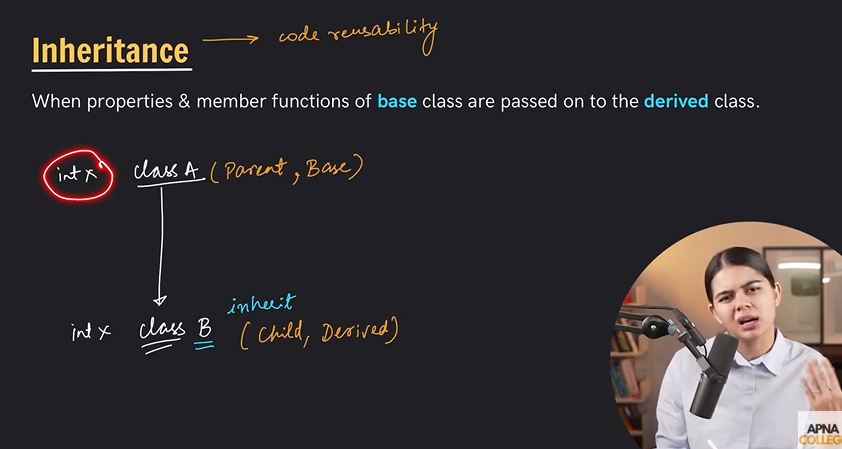 Inheritance → code reusability
When properties & member functions of base class are passed on to the derived class.
int x class A (Parent, Base)
inherit
int x class B (Child, Derived)
APNA
COLLEG